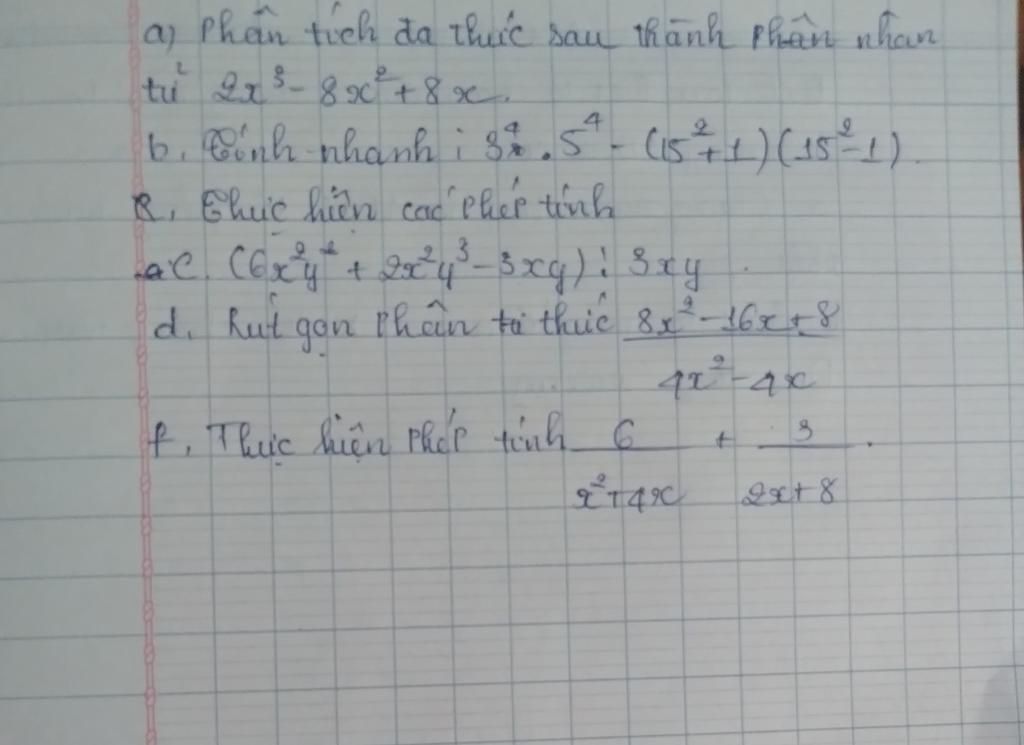 a) Phân tích đa thức sau thành phần nhân
tử 2x³ - 8x² + 8x.
b, Tính nhanh : 3⁴ . 5⁴ - (15² + 1) (15² - 1).
R, Thực hiện các phép tính
c. (6x²y² + 2x²y³ - 3xy) : 3xy
d. Rút gọn phân tử thức (8x² - 16x + 8)/(4x² - 4x)
f, Thực hiện phép tính 6/(x² + 4x) + 3/(2x + 8).